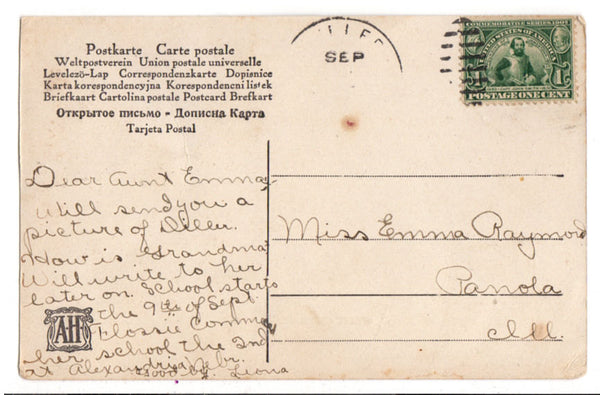 Postkarte Carte postale
Weltpostverein Union postale universelle
Levelező-Lap Correspondenzkarte Dopisnice
Karta korespondencyjna Korespondencni listek
Briefkaart Cartolina postale Postcard Brefkart
Открытое письмо - Дописна Карта
Tarjeta Postal
SEP
COMMEMORATIVE SERIES 1907
UNITED STATES OF AMERICA
1
POSTAGE ONE CENT
Dear Aunt Emma,
Will send you a
picture of Diller.
How is Grandma
Will write to her
later on. School starts
the 9th of Sept
Flossie
her school the 2nd
at Alexandria Nbr.
Good by. Leona
AH
Miss Emma Raymond
Panola
Ill.